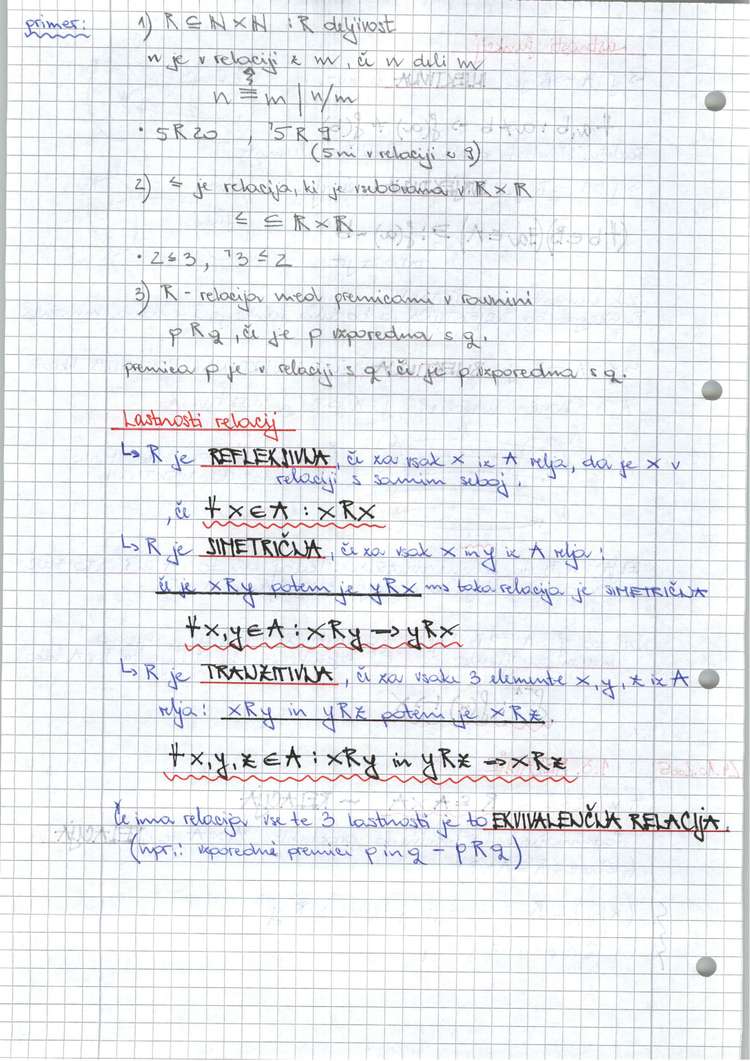 primer: 1) R ⊆ N × N : R deljivost
n je v relaciji z m, če n deli m
n ≡ m | n/m
• 5R20 , ¬5R9
(5 ni v relaciji z 9)
2) ≤ je relacija, ki je vsebovana v R × R
≤ ⊆ R × R
• 2≤3, ¬3≤2
3) R - relacija med premicami v ravnini
pRq, če je p vzporedna s q.
premica p je v relaciji s q, če je p vzporedna s q.
Lastnosti relacij
↳ R je REFLEKSIVNA, če za vsak x iz A velja, da je x v
relaciji s samim seboj.
, če ∀x∈A : xRx
↳ R je SIMETRIČNA, če za vsak x in y iz A velja:
če je xRy potem je yRx ⇒ taka relacija je SIMETRIČNA
∀x,y∈A : xRy → yRx
↳ R je TRANZITIVNA, če za vsake 3 elemente x, y, z iz A
velja: xRy in yRz potem je xRz.
∀x,y,z∈A : xRy in yRz → xRz
Če ima relacija vse te 3 lastnosti je to EKVIVALENČNA RELACIJA.
(npr.: vzporedne premici p in q - pRq)